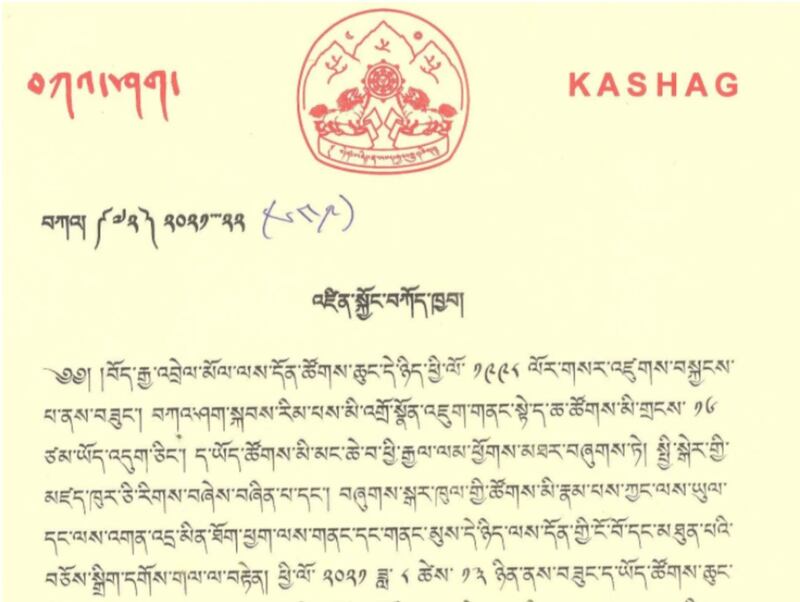 བཀའ་ཤག
KASHAG
བཀའ། ༼༧༢༽ ༢༠༢༡—༢༢
འཛིན་སྐྱོང་བཀོད་ཁྱབ།
༄༅། །བོད་རྒྱ་འབྲེལ་མོལ་ལས་དོན་ཚོགས་ཆུང་དེ་ཉིད་ཕྱི་ལོ་ ༡༩༩༨ ལོར་གསར་འཛུགས་བསྐྱངས་
པ་ནས་བཟུང་། བཀའ་ཤག་སྐབས་རིམ་པས་མི་འགྲོ་སྣོན་འཇུག་གནང་སྟེ་ད་ཆ་ཚོགས་མི་གྲངས་ ༡༦
ཙམ་ཡོད་འདུག་ཅིང་། ད་ཡོད་ཚོགས་མི་མང་ཆེ་བ་ཕྱི་རྒྱལ་ལམ་ཕྱོགས་མཐར་བཞུགས་ཏེ། སྤྱི་སྒེར་གྱི་
མཛད་ཁུར་ཅི་རིགས་བཞེས་བཞིན་པ་དང་། བཞུགས་སྒར་ཁུལ་གྱི་ཚོགས་མི་རྣམ་པས་ཀྱང་ལས་ཡུལ་
དང་ལས་འགན་འདྲ་མིན་ཐོག་ཕྱག་ལས་གནང་དང་གནང་མུས་དེ་ཉིད་ལས་དོན་གྱི་ངོ་བོ་དང་མཐུན་པའི་
བཅོས་སྒྲིག་དགོས་གལ་ལ་བརྟེན། ཕྱི་ལོ་ ༢༠༢༡ ཟླ་ ༨ ཚེས་ ༡༣ ཉིན་ནས་བཟུང་ད་ཡོད་ཚོགས་ཆུང་